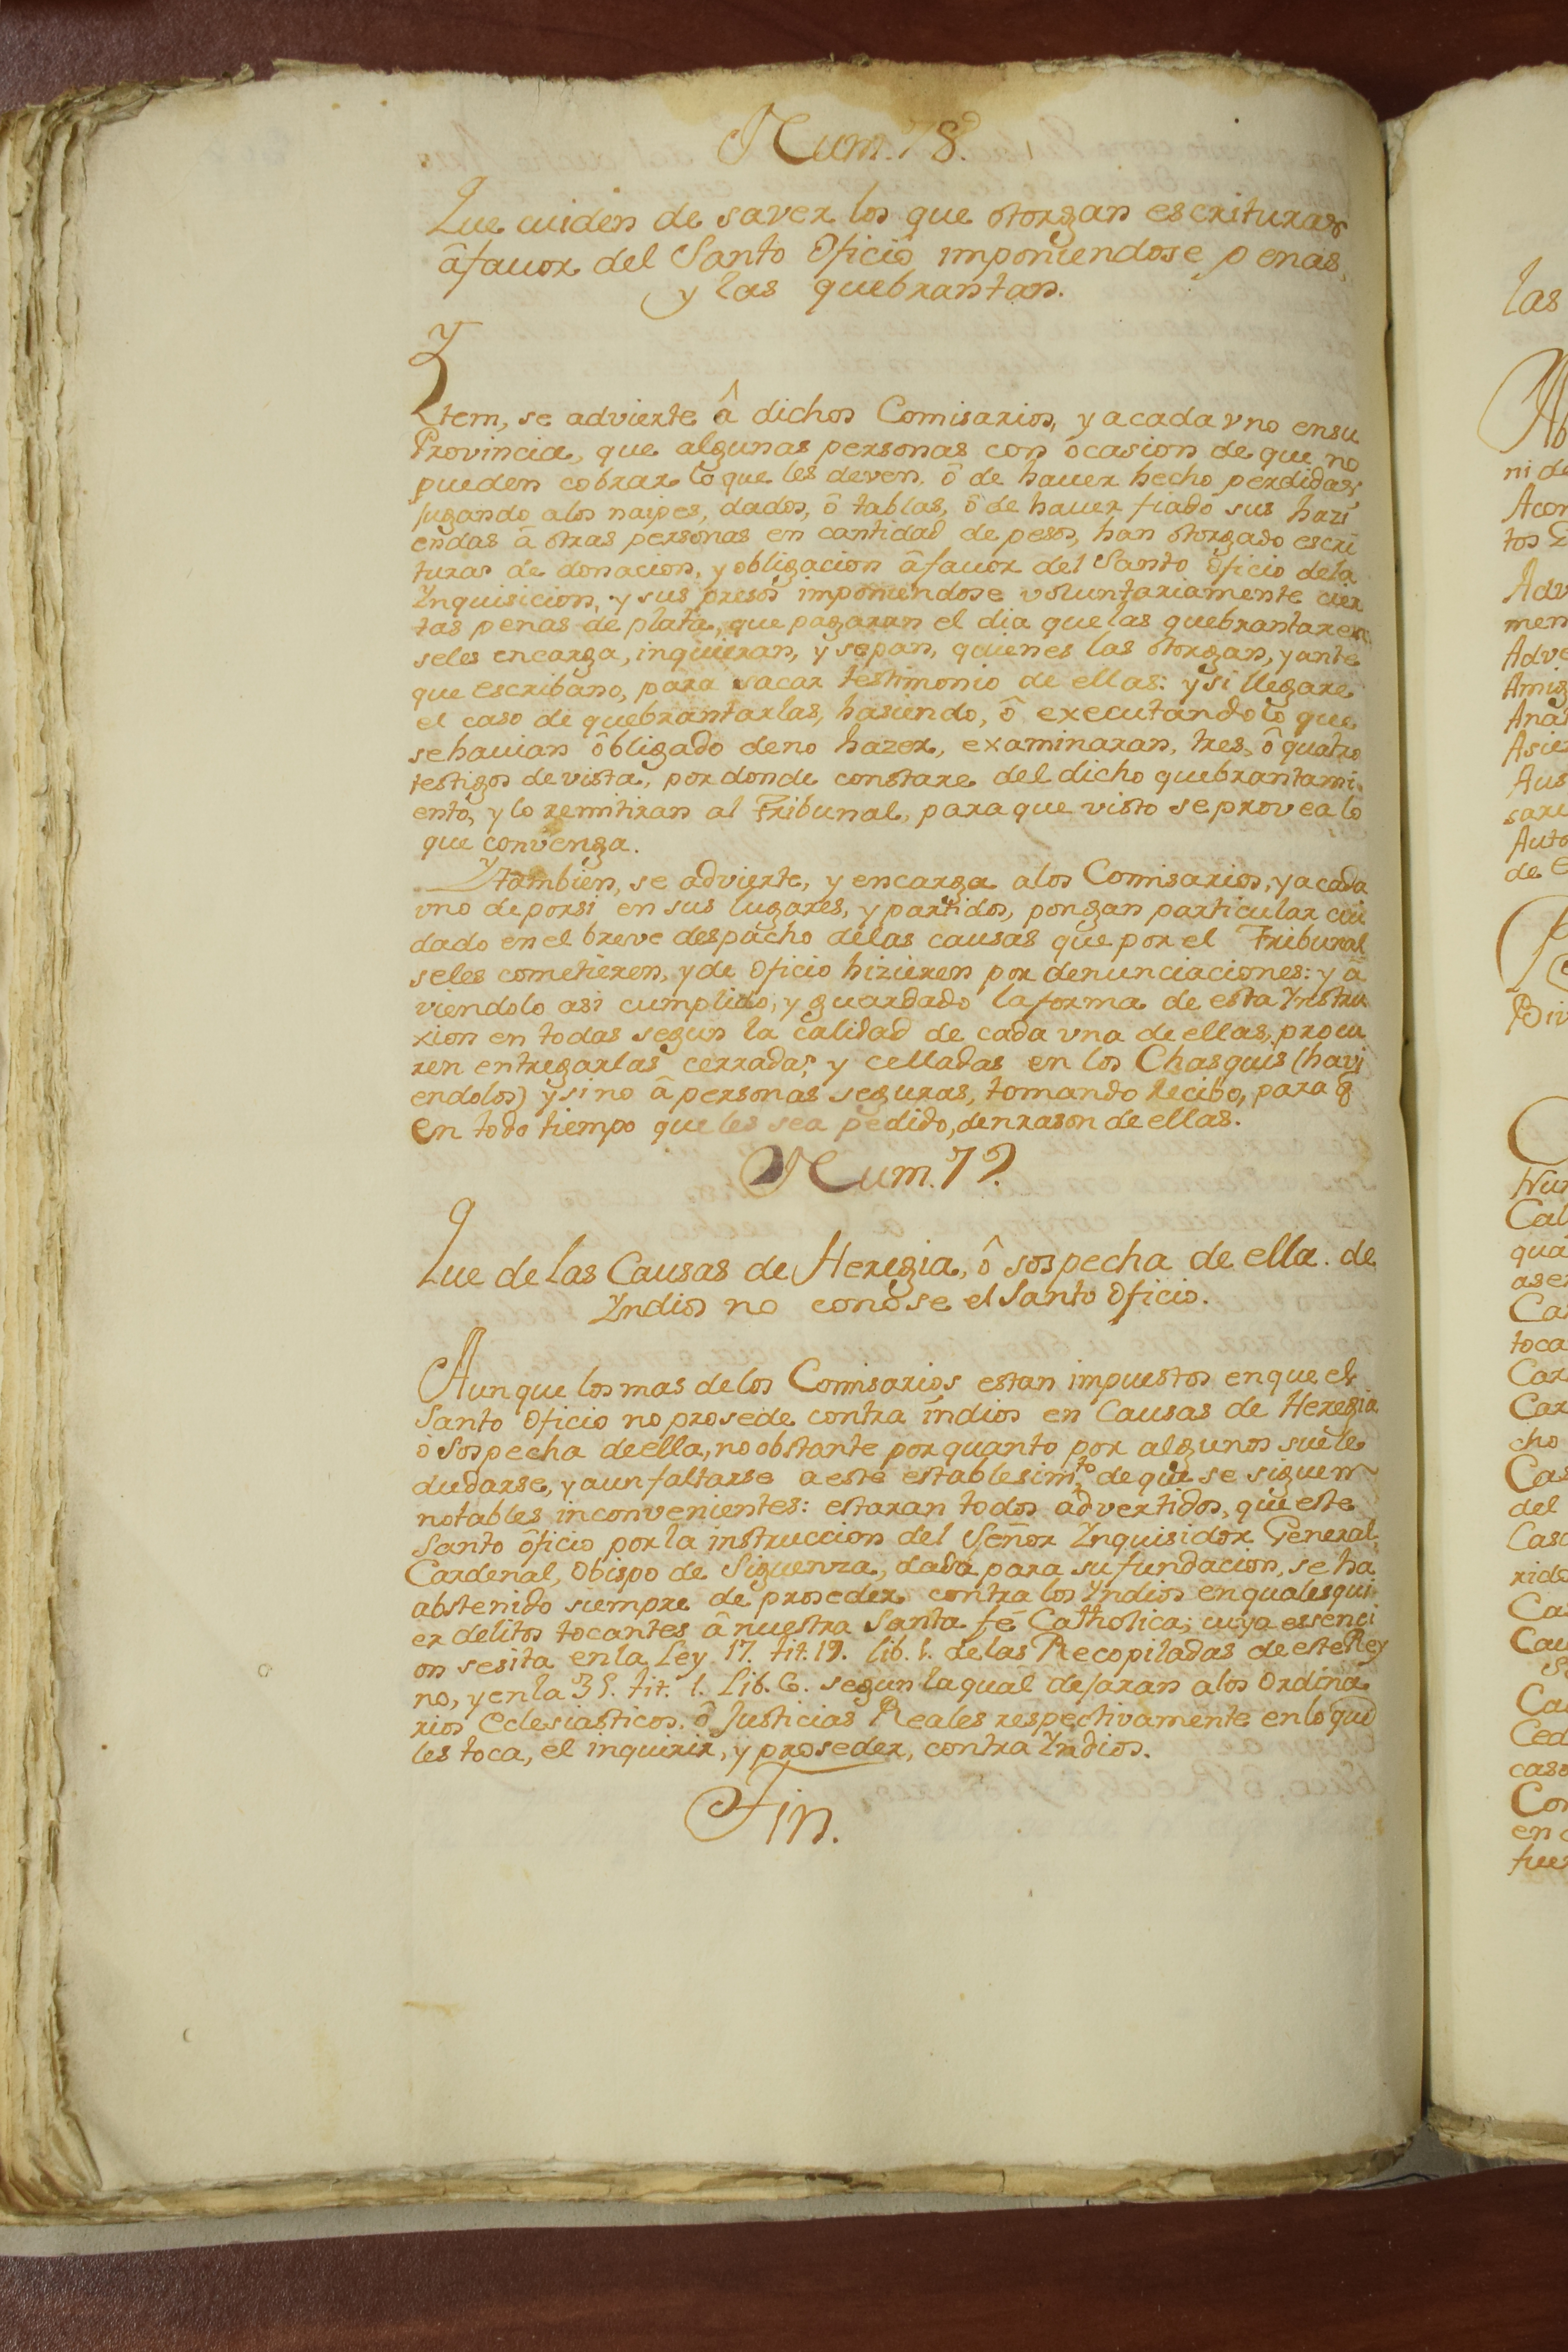 Num. 78.
Que cuiden de saver los que otorgan escrituras
â favor del Santo Oficio imponiendose penas,
y las quebrantan.
Ytem, se advierte â dichos Comisarios, y acada vno ensu
Provincia, que algunas personas con ôcasion de que no
pueden cobrar lo que les deven, ô de hauer hecho perdidas,
Jugando alos naipes, dados, ô tablas, ô de hauer fiado sus hazi
endas â otras personas en cantidad de pesos, han otorgado escri
turas de donacion, y obligacion âfauor del Santo Oficio dela
Ynquisicion, y sus presos imponiendose voluntariamente cier
tas penas de plata, que pagaran el dia que las quebrantaren,
seles encarga, inquieran, y sepan, quienes las otorgan, y ante
que escribano, para sacar testimonio de ellas: y si llegare
el caso de quebrantarlas, hasiendo, ô executando lo que
se hauian ôbligado deno hazer, examinaran, tres, ô quatro
testigos de vista, por donde constare del dicho quebrantami
ento, y lo remitiran al Tribunal, para que visto se provea lo
que convenga.
Ytambien, se advierte, y encarga alos Comisarios, y acada
vno deporsi en sus lugares, y partidos, pongan particular cui
dado en el breve despacho delas causas que por el Tribunal
seles cometieren, y de Oficio hizieren por denunciaciones: y a
viendolo asi cumplido, y guardado la forma de esta Ynstru
xion en todas segun la calidad de cada vna de ellas, procu
ren entregarlas cerradas, y celladas en los Chasquis (havi
endolos) y si no â personas seguras, tomando recibo, para q
en todo tiempo que les sea pedido, den rason de ellas.
Num. 79.
Que de las Causas de Heregia, ô sospecha de ella. de
Yndios no conose el Santo Oficio.
Aunque los mas delos Comisarios estan impuestos en que el
Santo Oficio no prosede contra indios en Causas de Heregia
ô Sospecha de ella, no obstante por quanto por algunos suele
dudarse, y aun faltarse a este establesim.to de que se siguen
notables inconvenientes: estaran todos advertidos, que este
Santo ôficio por la instruccion del Señor Ynquisidor General,
Cardenal, Obispo de Siguenza, dada para su fundacion, se ha
abstenido siempre de proseder contra los Yndios en qualesqui
er delitos tocantes â nuestra Santa fé Catholica; cuya essenci
on se sita en la Ley 17. tit. 19. lib. 1. delas Recopiladas de este Rey
no, y en la 35. tit. 1. Lib. 6. segun la qual dejaran a los Ordina
rios Eclesiasticos, ô Justicias Reales respectivamente en lo que
les toca, el inquirir, y proseder, contra Yndios.
Fin.